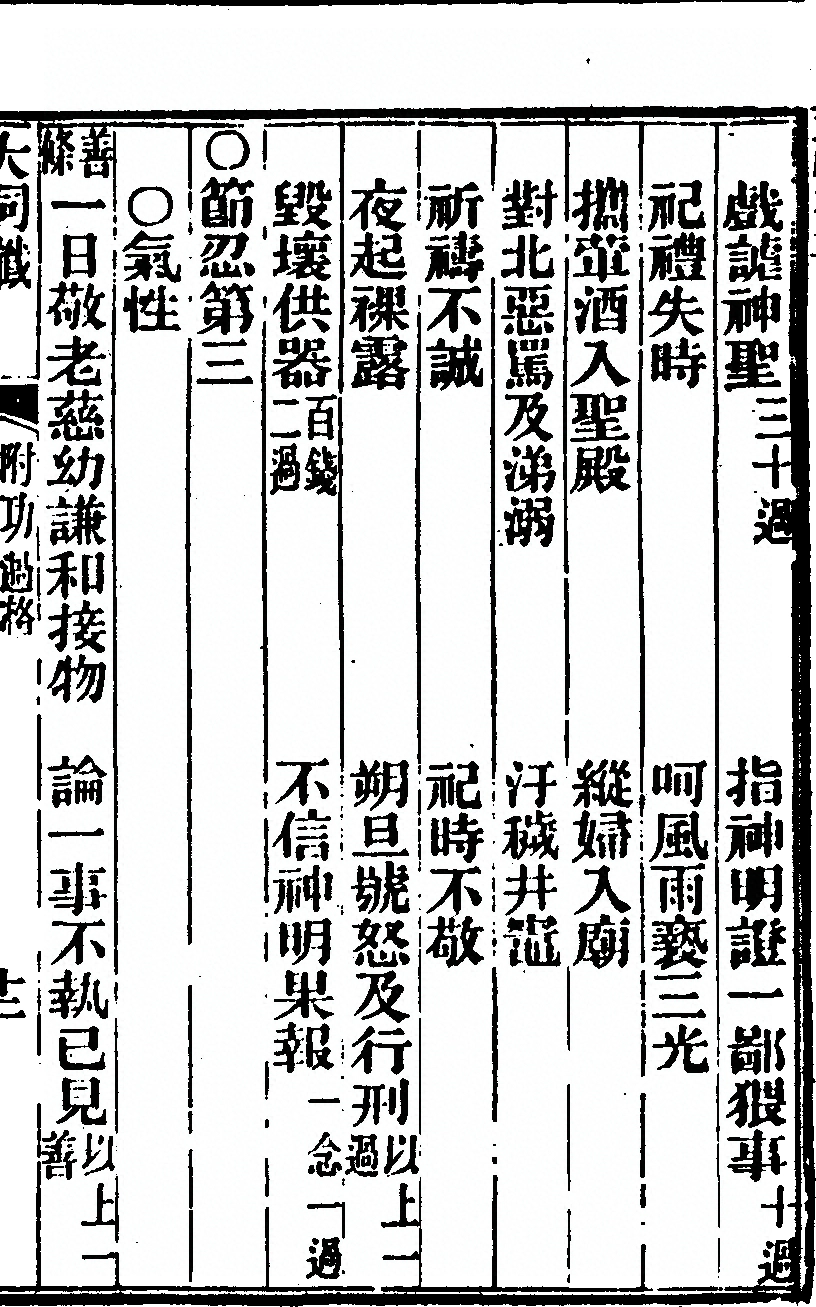 戲謔神聖三十過　指神明證一鄙猥事十過
祀禮失時　呵風雨褻三光
攜葷酒入聖殿　縱婦入廟
對北惡罵及涕溺　汙穢井竈
祈禱不誠　祀時不敬
夜起裸露　朔旦號怒及行刑以上一過
毀壞供器百錢二過　不信神明果報一念一過
〇節忍第三
〇氣性
善條一日敬老慈幼謙和接物　論一事不執己見以上一善
附功過格